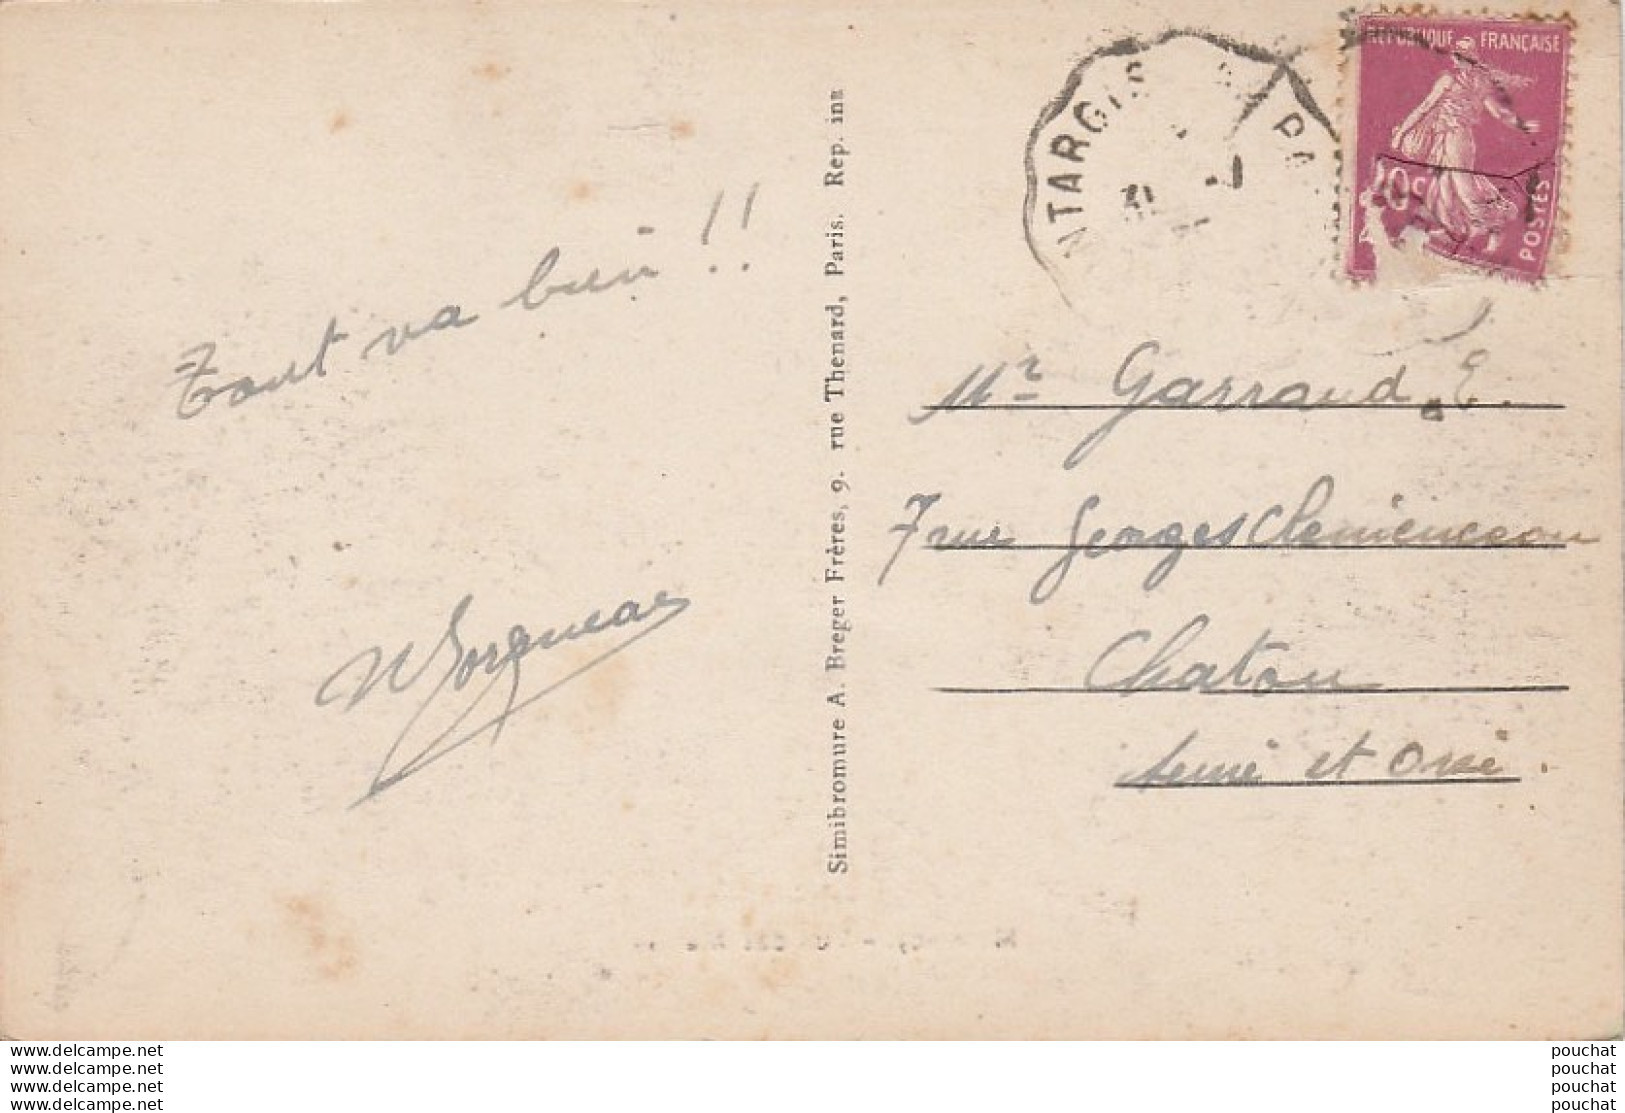 RÉPUBLIQUE FRANÇAISE
POSTES
Tout va bien !!
Simibromure A. Breger Frères, 9. rue Thenard, Paris. Rep. inn
Mr Garraud. E.
7 rue Georges Clemenceau
Chatou
Seine et Oise.
www.delcampe.net
www.delcampe.net
www.delcampe.net
www.delcampe.net
pouchat
pouchat
pouchat
pouchat